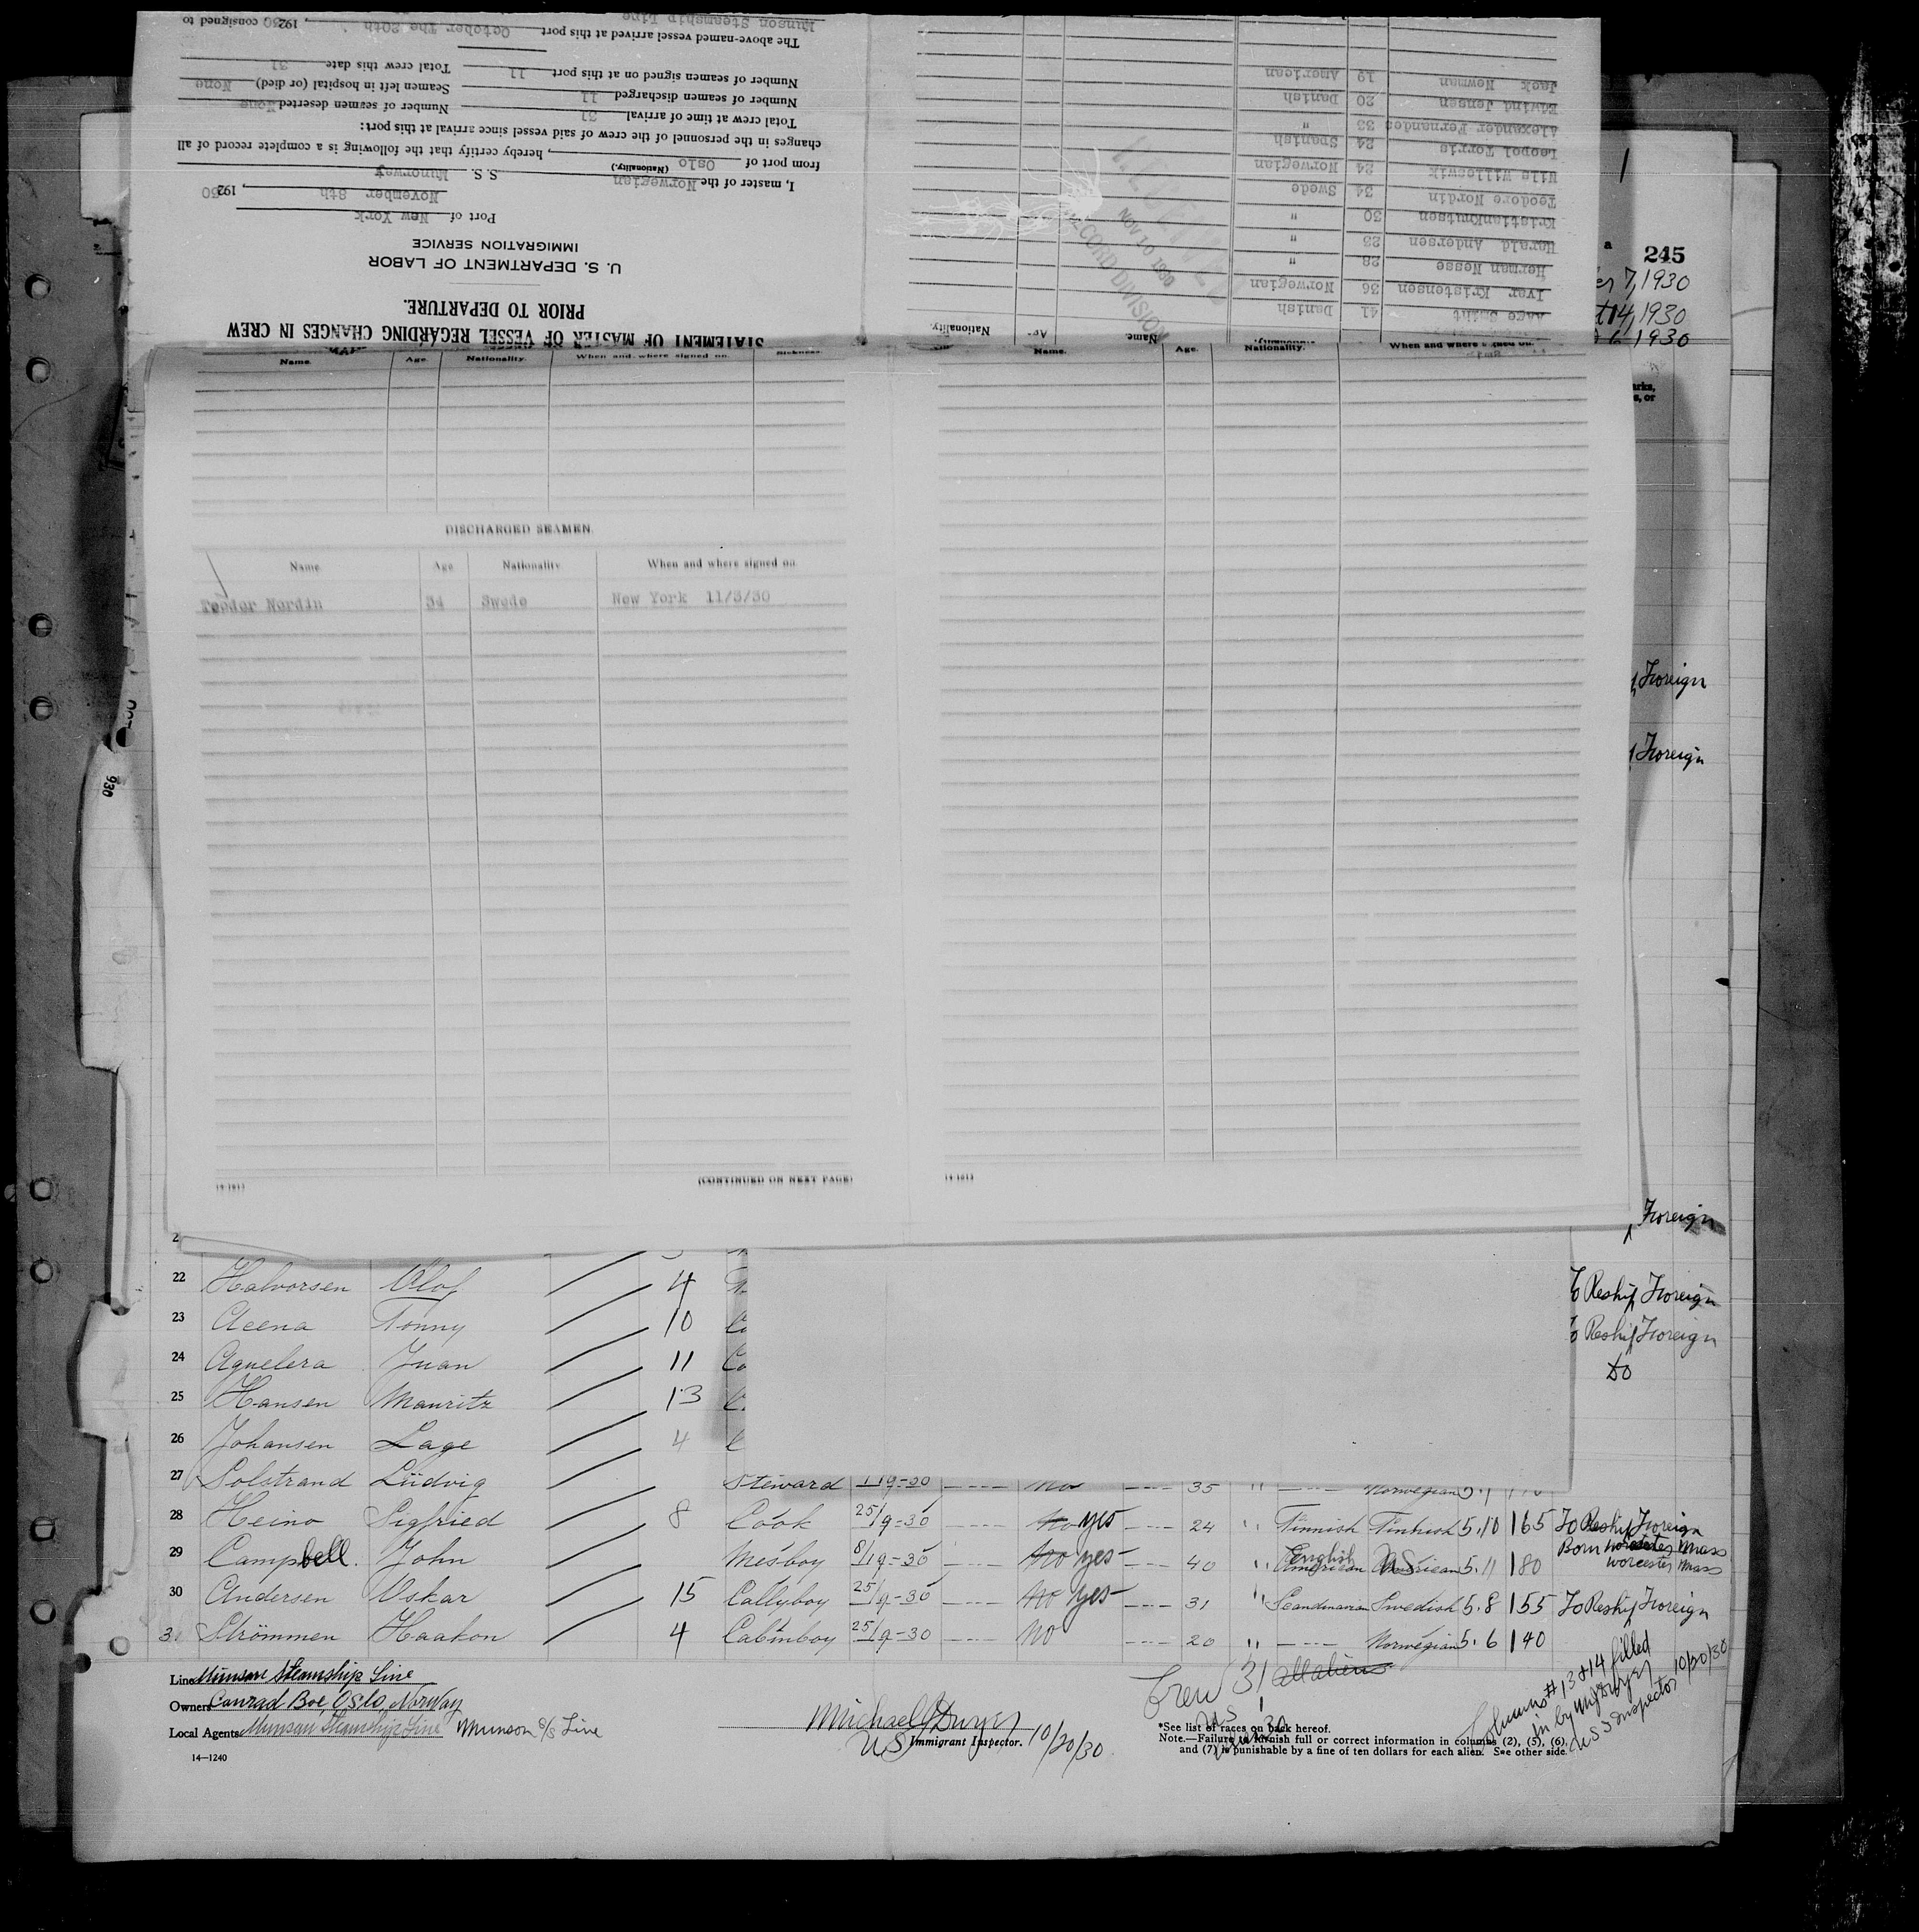 Munson Steamship Line
The above-named vessel arrived at this port October The 20th, 1930 consigned to
Number of seamen signed on at this port 11 Total crew this date 31
Number of seamen discharged 11 Seamen left in hospital (or died) None
Total crew at time of arrival 31 Number of seamen deserted None
changes in the personnel of the crew of said vessel since arrival at this port:
from port of Oslo, hereby certify that the following is a complete record of all
(Nationality.)
I, master of the Norwegian S. S. Munorway
November 8th, 1930
Port of New York
IMMIGRATION SERVICE
U. S. DEPARTMENT OF LABOR
PRIOR TO DEPARTURE.
STATEMENT OF MASTER OF VESSEL REGARDING CHANGES IN CREW
Jack Newman 19 American
Edwind Jensen 20 Danish
Alexander Fernandes 33 "
Leopol Torris 24 Spanish
24 Norwegian
Teodore Nordin 34 Swede
Kristian Knutsen 30 "
Harald Andersen 23 "
Herman Nesse 28 "
Iver Kristensen 36 Norwegian
Aage Smiht 41 Danish
Name Nationality.
NOV 10 1930
RECORD DIVISION
245
7, 1930
14, 1930
1930
Name. Age. Nationality. When and where signed on. Sickness.
Name. Age. Nationality. When and where signed on.
DISCHARGED SEAMEN.
Name Age Nationality When and where signed on.
Teodor Nordin 34 Swede New York 11/3/30
Foreign
Foreign
14-1241 (CONTINUED ON NEXT PAGE) 14-1241
Foreign
22 Halvorsen Olof 4 To Reship Foreign
23 Acena Tonny 10 To Reship Foreign
24 Aguelera Juan 11 Do
25 Hansen Mauritz 13
26 Johansen Lage 4
27 Solstrand Ludvig Steward 1/9-30 No 35 " Norwegian 5.7
28 Heino Sigfried 8 Cook 25/9-30 No yes 24 " Finnish Finnish 5.10 165 To Reship Foreign
29 Campbell. John Mesboy 8/19-30 No yes 40 " English American U S American 5.11 180 Born Worcester Mass
Worcester Mass
30 Andersen Oskar 15 Gallyboy 25/9-30 No yes 31 " Scandinavian Swedish 5.8 155 To Reship Foreign
31 Strömmen Haakon 4 Cabinboy 25/9-30 No 20 " Norwegian 5.6 140
Line Munson Steamship Line
Owners Conrad Boe, Oslo, Norway
Local Agents Munson Steamship Line Munson S/S Line
14—1240
Michael J Dwyer
US Immigrant Inspector. 10/20/30
Crew 31 all aliens
U S 1
Alien 30
*See list of races on back hereof.
Note.—Failure to furnish full or correct information in columns (2), (5), (6),
and (7) is punishable by a fine of ten dollars for each alien. See other side.
Columns # 13 & 14 filled
in by M J Dwyer
U S I Inspector 10/20/30